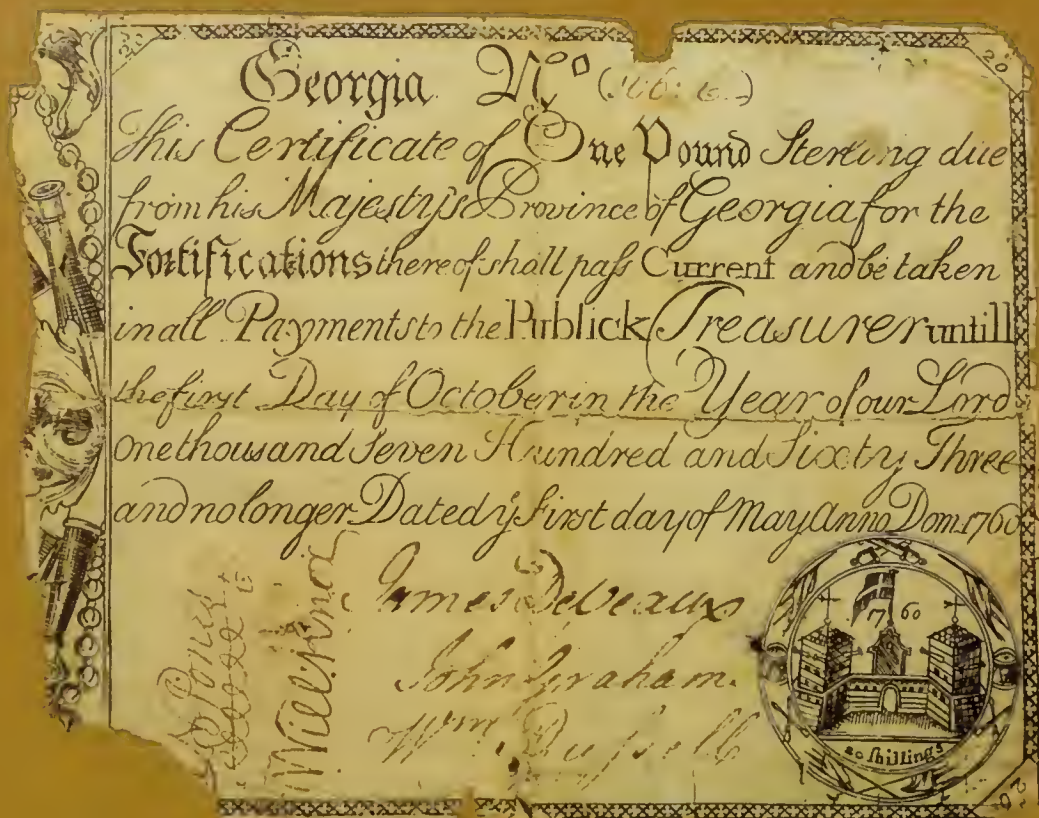 20
20
Georgia Nº
This Certificate of One Pound Sterling due
from his Majesty's Province of Georgia for the
Fortifications thereof shall paſs Current and be taken
in all Payments to the Publick Treasurer untill
the first Day of October in the Year of our Lord
One thousand Seven Hundred and Sixty Three
and no longer Dated yͤ First day of May Anno Dom. 1760
James DeVeaux
John Graham
Wᵐ Ruſsell
1760
20 ſhillings
20